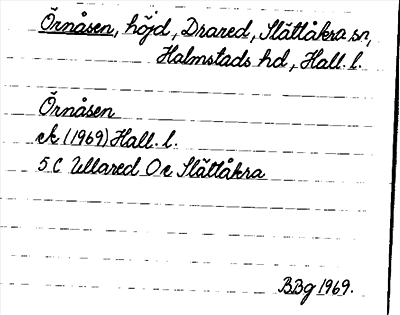 Örnåsen, höjd, Drared, Slättåkra sn,
Halmstads hd, Hall. l.
Örnåsen
ek (1969) Hall. l.
5C Ullared Oe Slättåkra
BBg 1969.